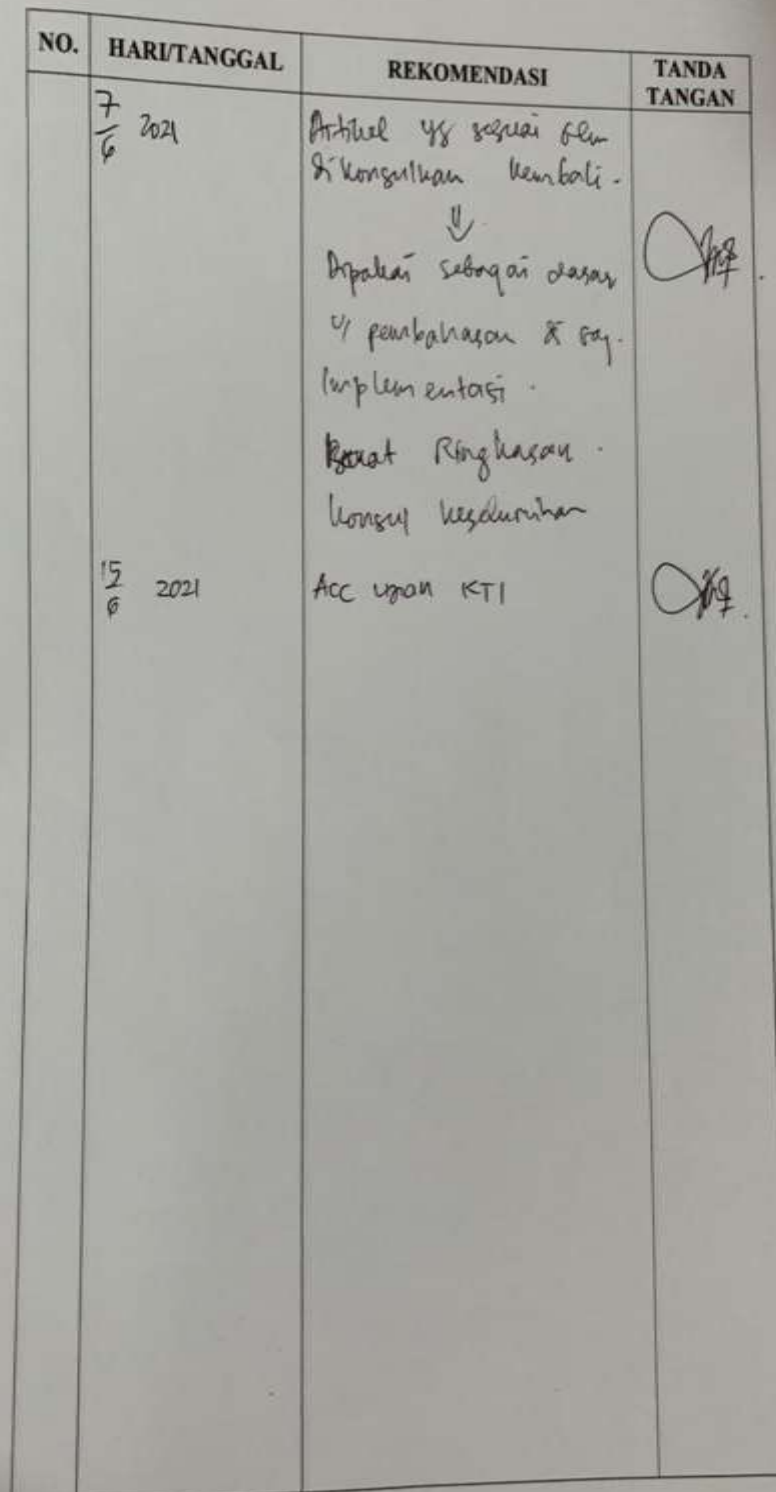 NO. HARI/TANGGAL REKOMENDASI TANDA TANGAN
7/6 2021 Artikel yg sesuai blm
dikonsulkan kembali.
⇓
Dipakai sebagai dasar
u/ pembahasan &
Implementasi.
Buat Ringkasan.
Konsul keseluruhan
15/6 2021 Acc ujian KTI